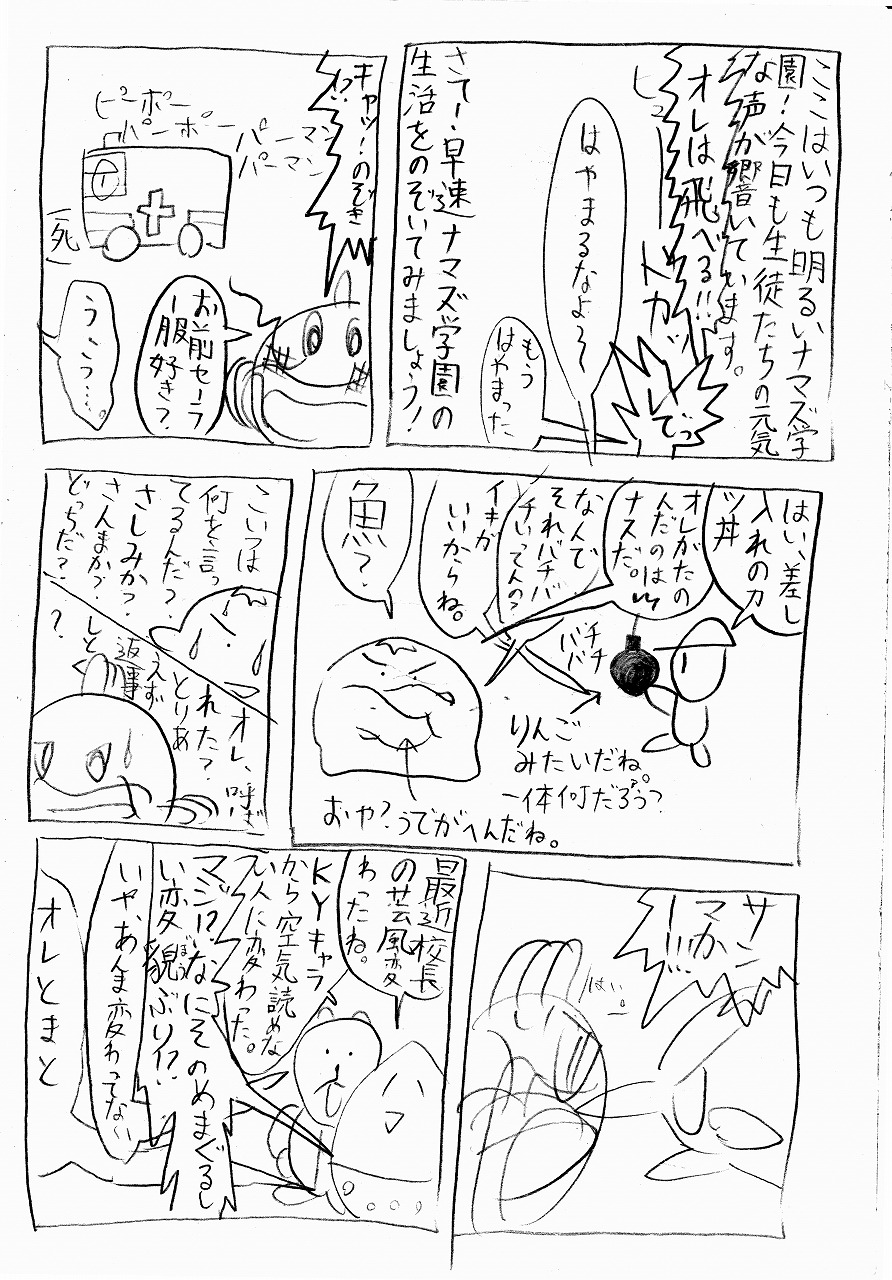 ここはいつも明るいナマズ学
園！今日も生徒たちの元気
な声が響いています。
オレは飛べる!!
ヒューー
ドカッ
はやまるなよ～
しでっ
もう
はやまった
さてー・早速ナマズ学園の
生活をのぞいてみましょう！
キャッ！のぞき
!?
ピーポー
パーポー
パーマン
パーマン
死
お前セーラ
ー服好き？
う、こっ……。
はい、差し
入れのカ
ツ丼
オレがたの
んだのは
ナスだ。
なんで、
それバチバ
チいってんの？
イキが
いいからね。
魚？
バチ
バチ
りんご
みたいだね。
一体何だろう？
おや？うでがへんだね。
こいつは
何を言っ
てるんだ？
さしみか？
さんまか？
どっちだ？
オレ、呼ば
れた？
とりあ
えず
返事
しと
？
サン
マか
ー!!!
はい。
最近校長
の芸風変
わったね。
KYキャラ
から空気読めな
い人に変わった。
マジ!?なにそのめまぐるし
い変貌ぶり!?
ぼう
いや、あんま変わってない
オレとまと